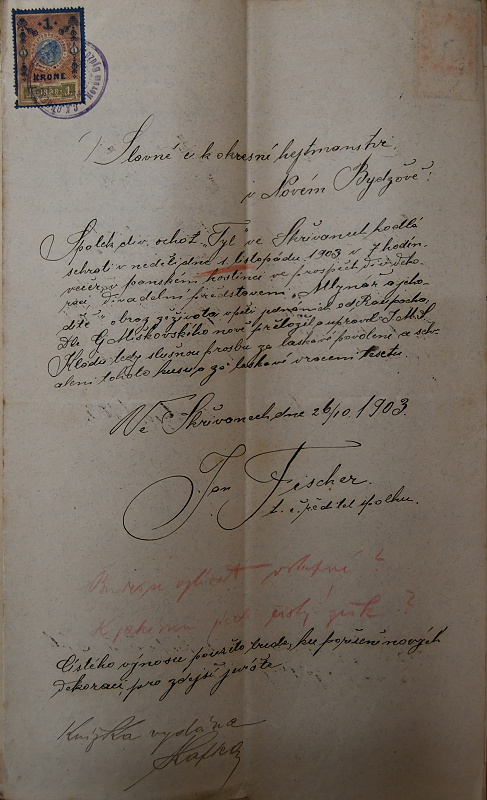 1
KRONE
1898
Slavné c. k. okresní hejtmanství
v Novém Bydžově!
Spolek div. ochot. "Tyl" ve Skřivanech hodlá
sehrati v neděli dne 1. listopadu 1903 v 7 hodin
večer v panském hostinci ve prospěch
divadelní představení "Mlynář a jeho
dítě" obraz ze života v pěti jednáních od Raupacha,
Dle nově přeložil a upravil J. M. L.
Kladu tedy slušnou prosbu za laskavé povolení a schv-
álení tohoto kusu a za laskavé vrácení textu.
Ve Skřivanech dne 26/10 1903.
Jan Fischer
t. č. ředitel spolku.
Bude se vybírat vstupné?
K jakému čistý zisk?
Čistého výnosu použito bude, ku pořízení nových
dekorací, pro zdejší jeviště.
Knížka vydána